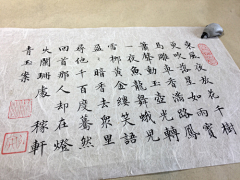 東風夜放花千樹
更吹落星如雨寶
馬雕車香滿路鳳
簫聲動玉壺光轉
一夜魚龍舞蛾兒
雪柳黃金縷笑語
盈:暗香去衆里
尋他千百度驀然
回首那人却在燈
火闌珊處 稼軒
青玉案